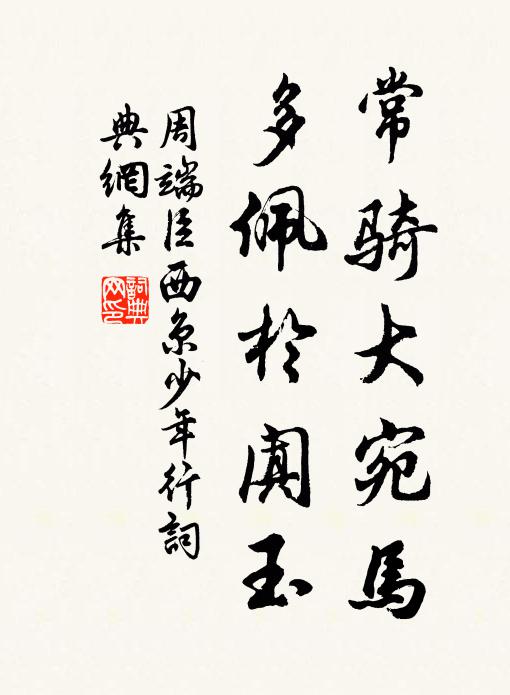 常騎大宛馬
多佩於闐玉
周端臣西京少年行詞
典網集
詞典
网印